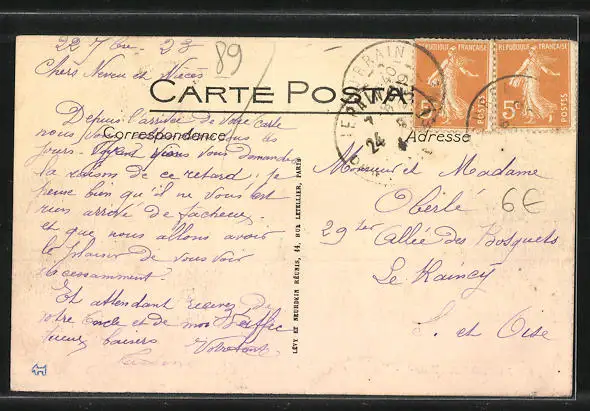 22 7bre 23
89
Chers Neveu et Nièces
CARTE POSTALE
Correspondance
Adresse
Depuis l'arrivée de votre carte
nous vous
jours. vous vous demande
la raison de ce retard; je
pense bien qu'il ne vous est
rien arrivé de facheux
et que nous allons avoir
le plaisir de vous voir
incessamment.
En attendant recevez de
votre Oncle et de moi
baisers
LÉVY ET NEURDEIN RÉUNIS, 44, RUE LETELLIER, PARIS
Monsieur et Madame
Oberlé
6€
29ter Allée des Bosquets
Le Raincy
S. et Oise
RÉPUBLIQUE FRANÇAISE
5c
POSTES
RÉPUBLIQUE FRANÇAISE
5c
POSTES
24